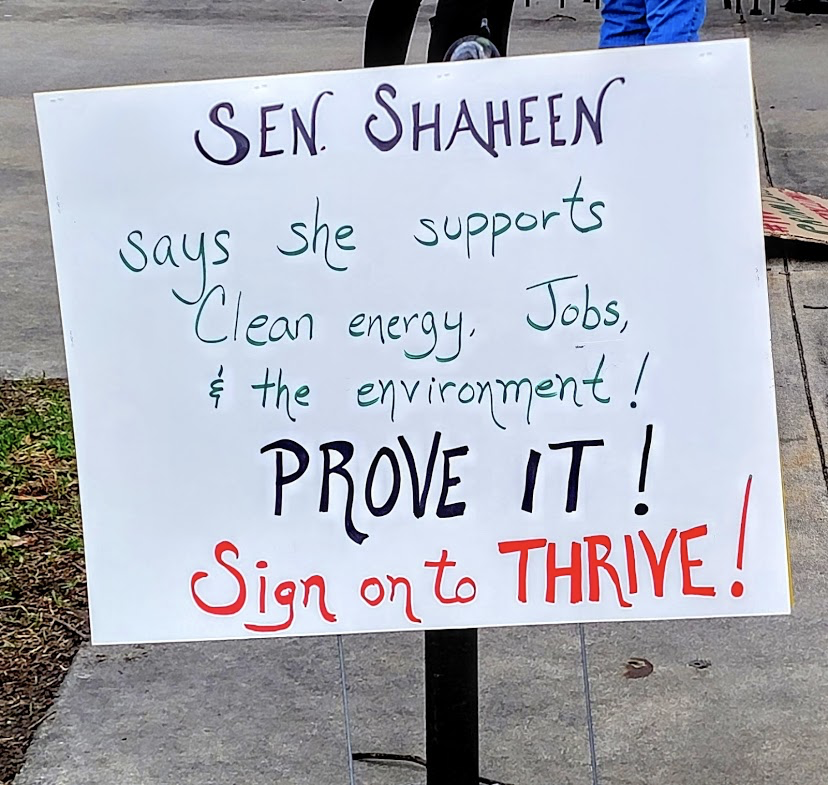 SEN. SHAHEEN
says she supports
Clean energy, Jobs,
& the environment!
PROVE IT!
Sign on to THRIVE!